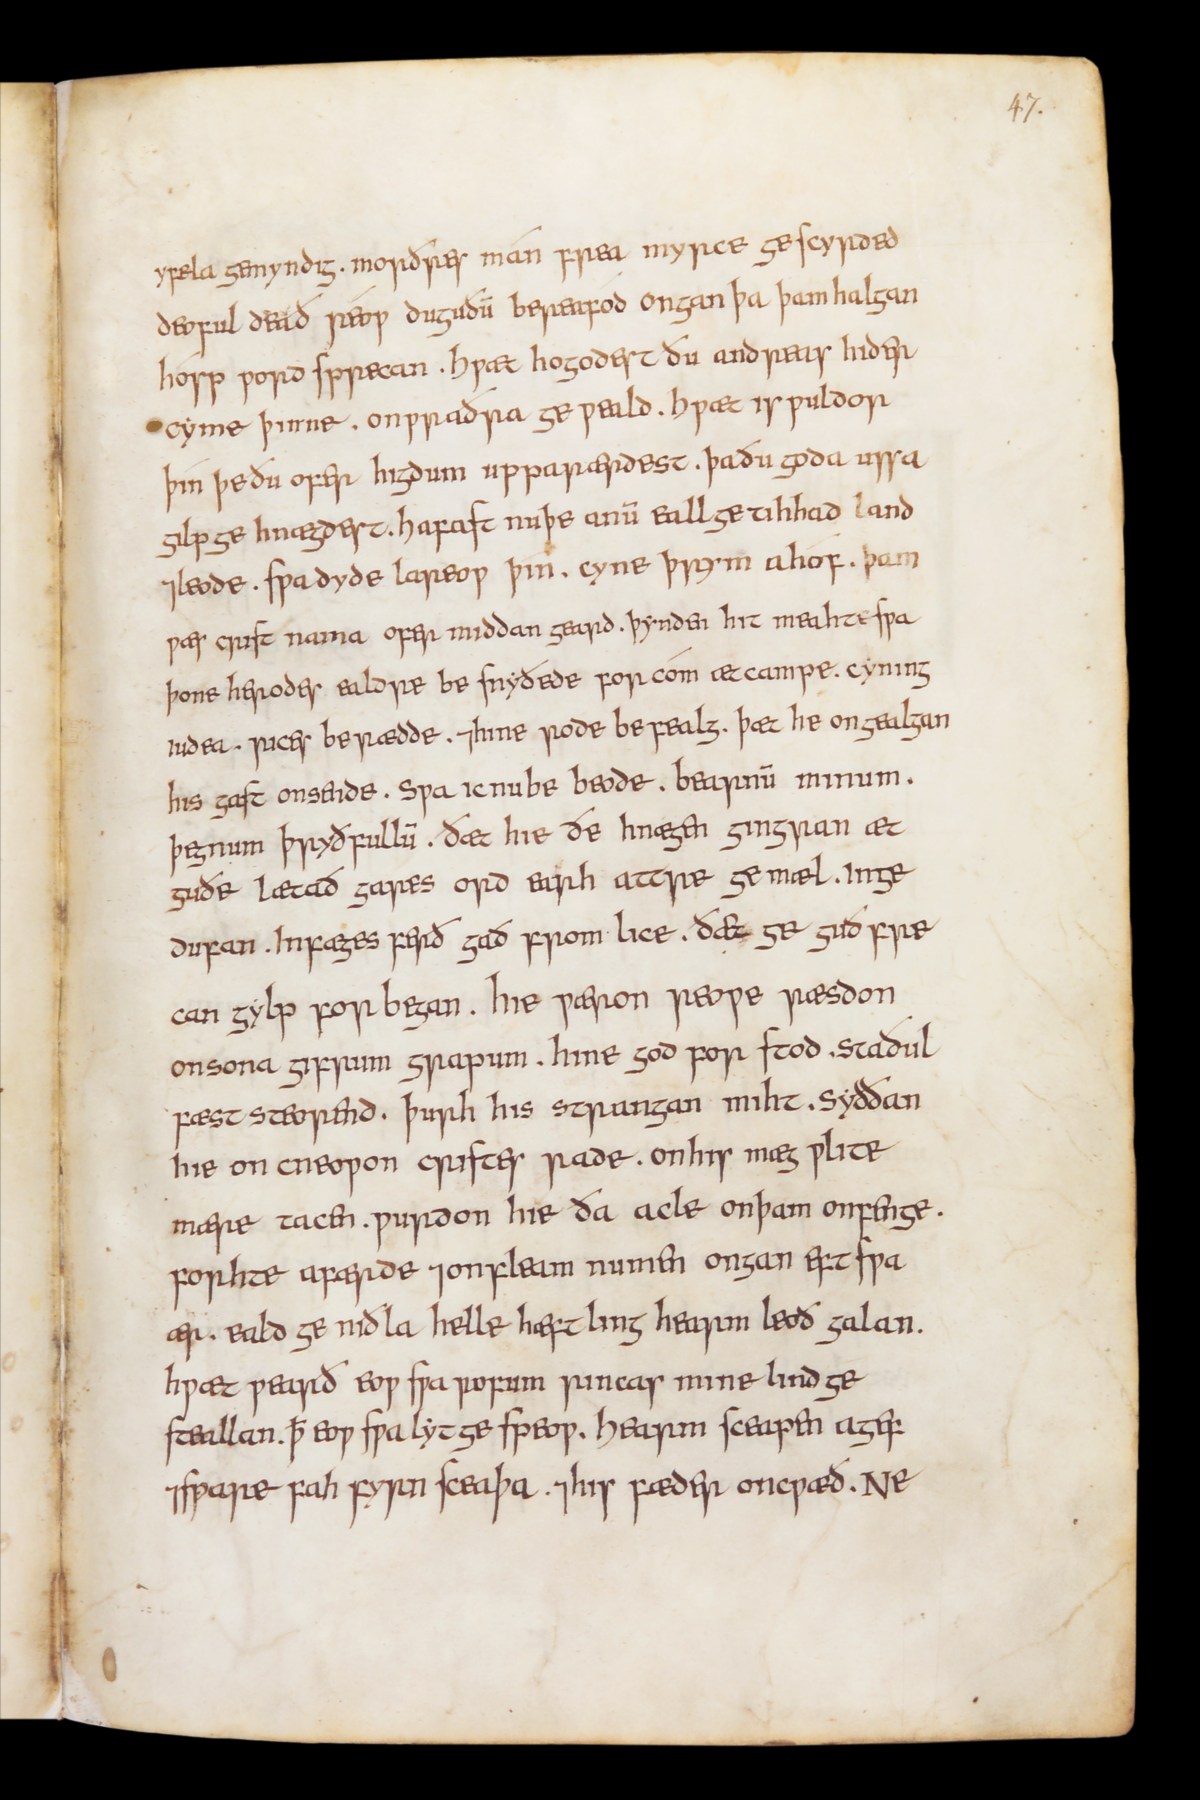 47.
yfela gemyndig . morðres mán frea myrce gescyrded
deoful deað réow duguðū bereafód ongan þa þam halgan
hosp word sprecan . hwæt hogodest ðu andreas hider
cyme þinne . on wraðra ge weald . hwæt is wuldor
þín þe ðu ofer higdum upp arærdest . þa ðu goda ussa
gilp ge hnægdest . hafast nu þe anū eall ge tihhad land
⁊ leode . swa dyde lareow þin . cyne þrym ahóf . þam
wæs crist nama ofer middan geard . þynden hit meahte swa
þone herodes ealdre be snyðede for cóm æt campe . cyning
iudea . rices berædde . ⁊ hine rode be fealg . þæt he on gealgan
his gast onsende . Swa ic nu be beode . bearnū minum .
þegnum þryðfullū . ðæt hie ðe hnægen gingran æt
guðe lætað gares ord earh attre ge mæl . In ge
dufan . In fæges ferð gað from lice . ðæt ge guð fre
can gylp for began . hie wæron reowe ræsdon
on sona gifrum grapum . hine god for stod . staðul
fæst steorend . þurh his strangan miht . Syððan
hie on cneowon cristes rade . on his mæg wlite
mære tacen . wurdon hie ða acle on þam onfenge .
forhte afærde ⁊ on fleam numen ongan eft swa
ær . eald ge niðla helle hæftling hearm leoð galan .
hwæt wearð eow swa rofum rincas mine lind ge
steallan . ꝥ eow swa lyt ge speow . hearm sceapen agef
⁊sware fah fyrn sceaþa . ⁊ his fæder oncwæð . Ne